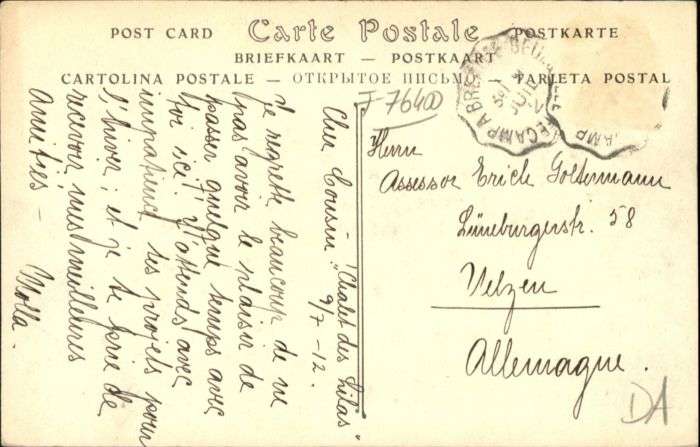 POST CARD Carte Postale POSTKARTE
BRIEFKAART — POSTKAART
CARTOLINA POSTALE — ОТКРЫТОЕ ПИСЬМО — TARJETA POSTAL
J 76400
FECAMP A BRE
"Chalet des Lilas"
9/7-12.
Cher Cousin,
Je regrette beaucoup de ne
pas avoir le plaisir de
passer quelque temps avec
toi ici! J'attends avec
impatience tes projets pour
l'hiver; et je te prie de
recevoir mes meilleures
amitiés —
Molla.
Herrn
Assessor Erich Goltermann
Lüneburgerstr. 58
Uelzen
Allemagne.
DA